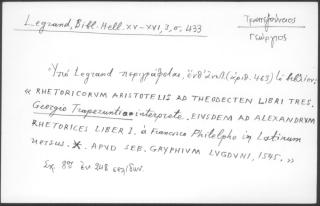 Legrand, Bibl. Hell. XV-XVI, 3, σ. 433
Τραπεζούντιος
Γεώργιος
Ὑπὸ Legrand περιγράφεται, (ἀριθ. 463) τὸ βιβλίον:
« RHETORICORUM ARISTOTELIS AD THEODECTEN LIBRI TRES.
Georgio Trapezuntio interprete. EIUSDEM AD ALEXANDRUM
RHETORICES LIBER I. à Francisco Philelpho in Latinum
versus. * . APUD SEB. GRYPHIUM LUGDUNI, 1545. »
Σχ. 8º ἐν 248 σελίδων.